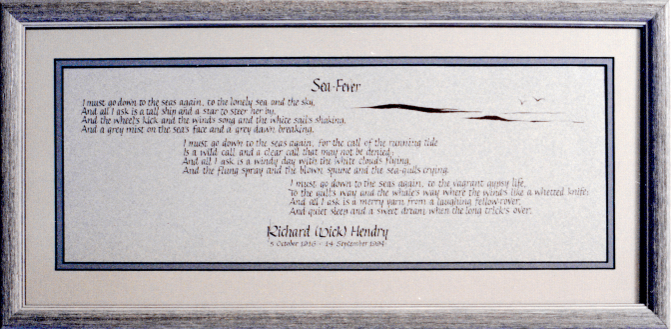 Sea-Fever
I must go down to the seas again, to the lonely sea and the sky,
And all I ask is a tall ship and a star to steer her by,
And the wheel's kick and the wind's song and the white sail's shaking,
And a grey mist on the sea's face and a grey dawn breaking.
I must go down to the seas again, for the call of the running tide
Is a wild call and a clear call that may not be denied;
And all I ask is a windy day with the white clouds flying,
And the flung spray and the blown spume and the sea-gulls crying.
I must go down to the seas again, to the vagrant gypsy life,
To the gull's way and the whale's way where the wind's like a whetted knife;
And all I ask is a merry yarn from a laughing fellow-rover,
And quiet sleep and a sweet dream when the long trick's over.
Richard (Dick) Hendry
5 October 1916 - 14 September